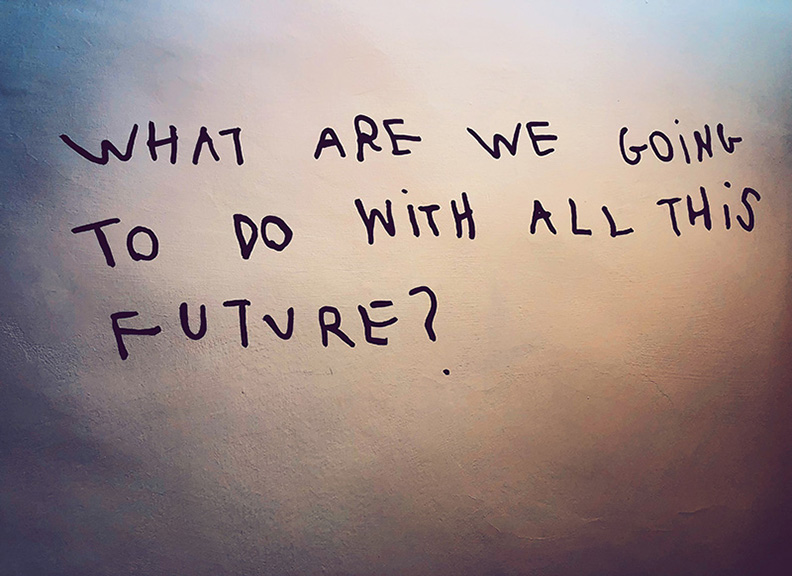 WHAT ARE WE GOiNG
TO DO WiTH ALL THiS
FUTURE?